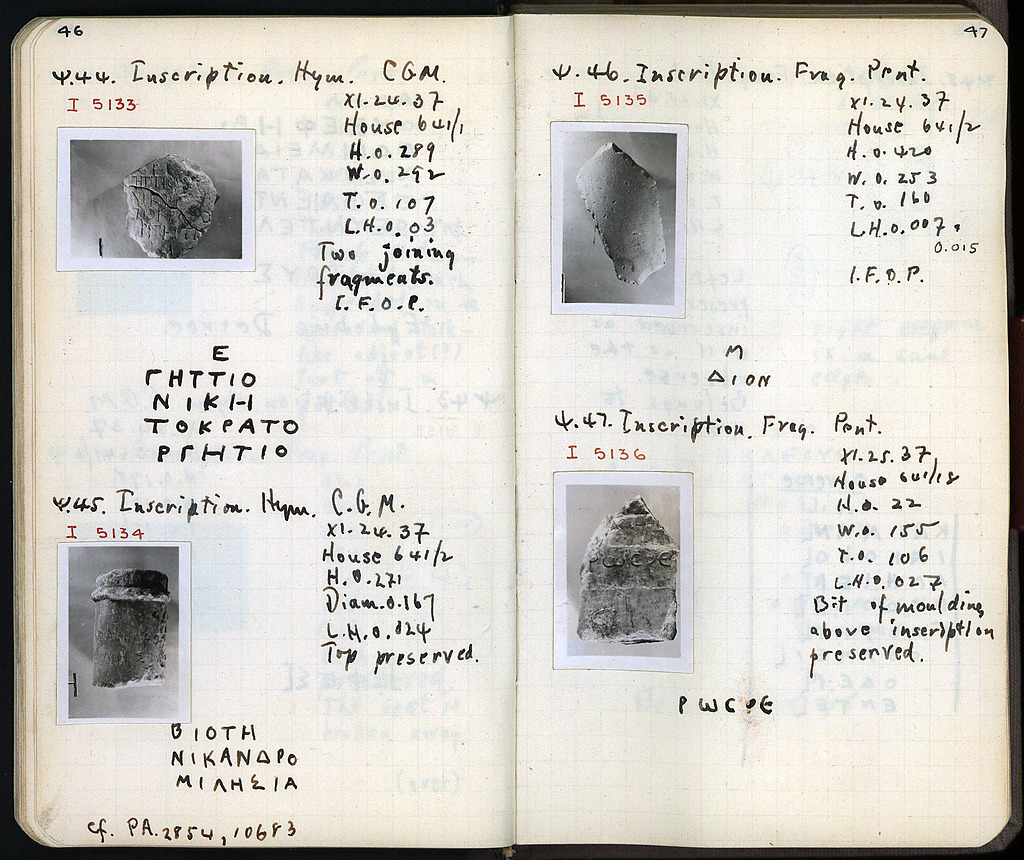 46
Ψ.44. Inscription. Hym. C.G.M.
I 5133
XI.24.37
House 641/1
H.0.289
W.0.292
T.0.107
L.H.0.03
Two joining
fragments.
I.F.O.P.
Ε
ΓΗΤΤΙΟ
ΝΙΚΗ
ΤΟΚΡΑΤΟ
ΡΓΗΤΙΟ
Ψ.45. Inscription. Hym. C.G.M.
I 5134
XI.24.37
House 641/2
H.0.271
Diam.0.167
L.H.0.024
Top preserved.
ΒΙΟΤΗ
ΝΙΚΑΝΔΡΟ
ΜΙΛΗΣΙΑ
cf. PA.2854, 10683
47
Ψ.46. Inscription. Frag. Pent.
I 5135
XI.24.37
House 641/2
H.0.420
W.0.253
T.0.160
L.H.0.007.
0.015
I.F.O.P.
Μ
ΔΙΟΝ
Ψ.47. Inscription. Frag. Pent.
I 5136
XI.25.37
House 641/18
H.0.22
W.0.155
T.0.106
L.H.0.027
Bit of moulding
above inscription
preserved.